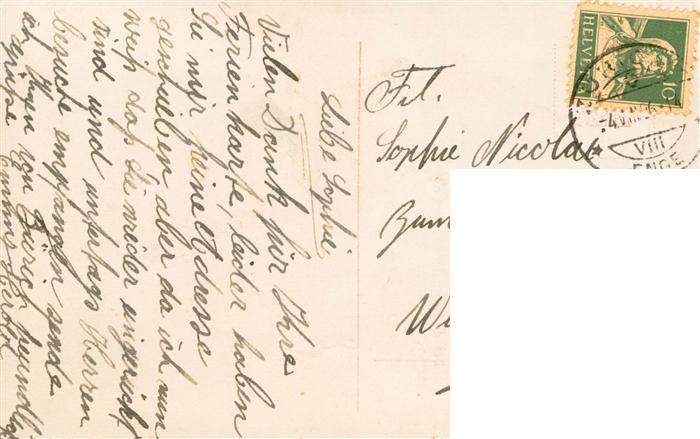 Liebe Sophie
Vielen Dank für Ihre
Ferienkarte, leider haben
Sie mir keine Adresse
geschrieben, aber da ich nun
weiß daß Sie wieder eingerückt
sind und unfertags Herren
besuche empfangen sende
ich Ihnen von Zürich freundlich
Grüße
Frl.
Sophie Nicolai
HELVETIA
10
VIII
ENGE